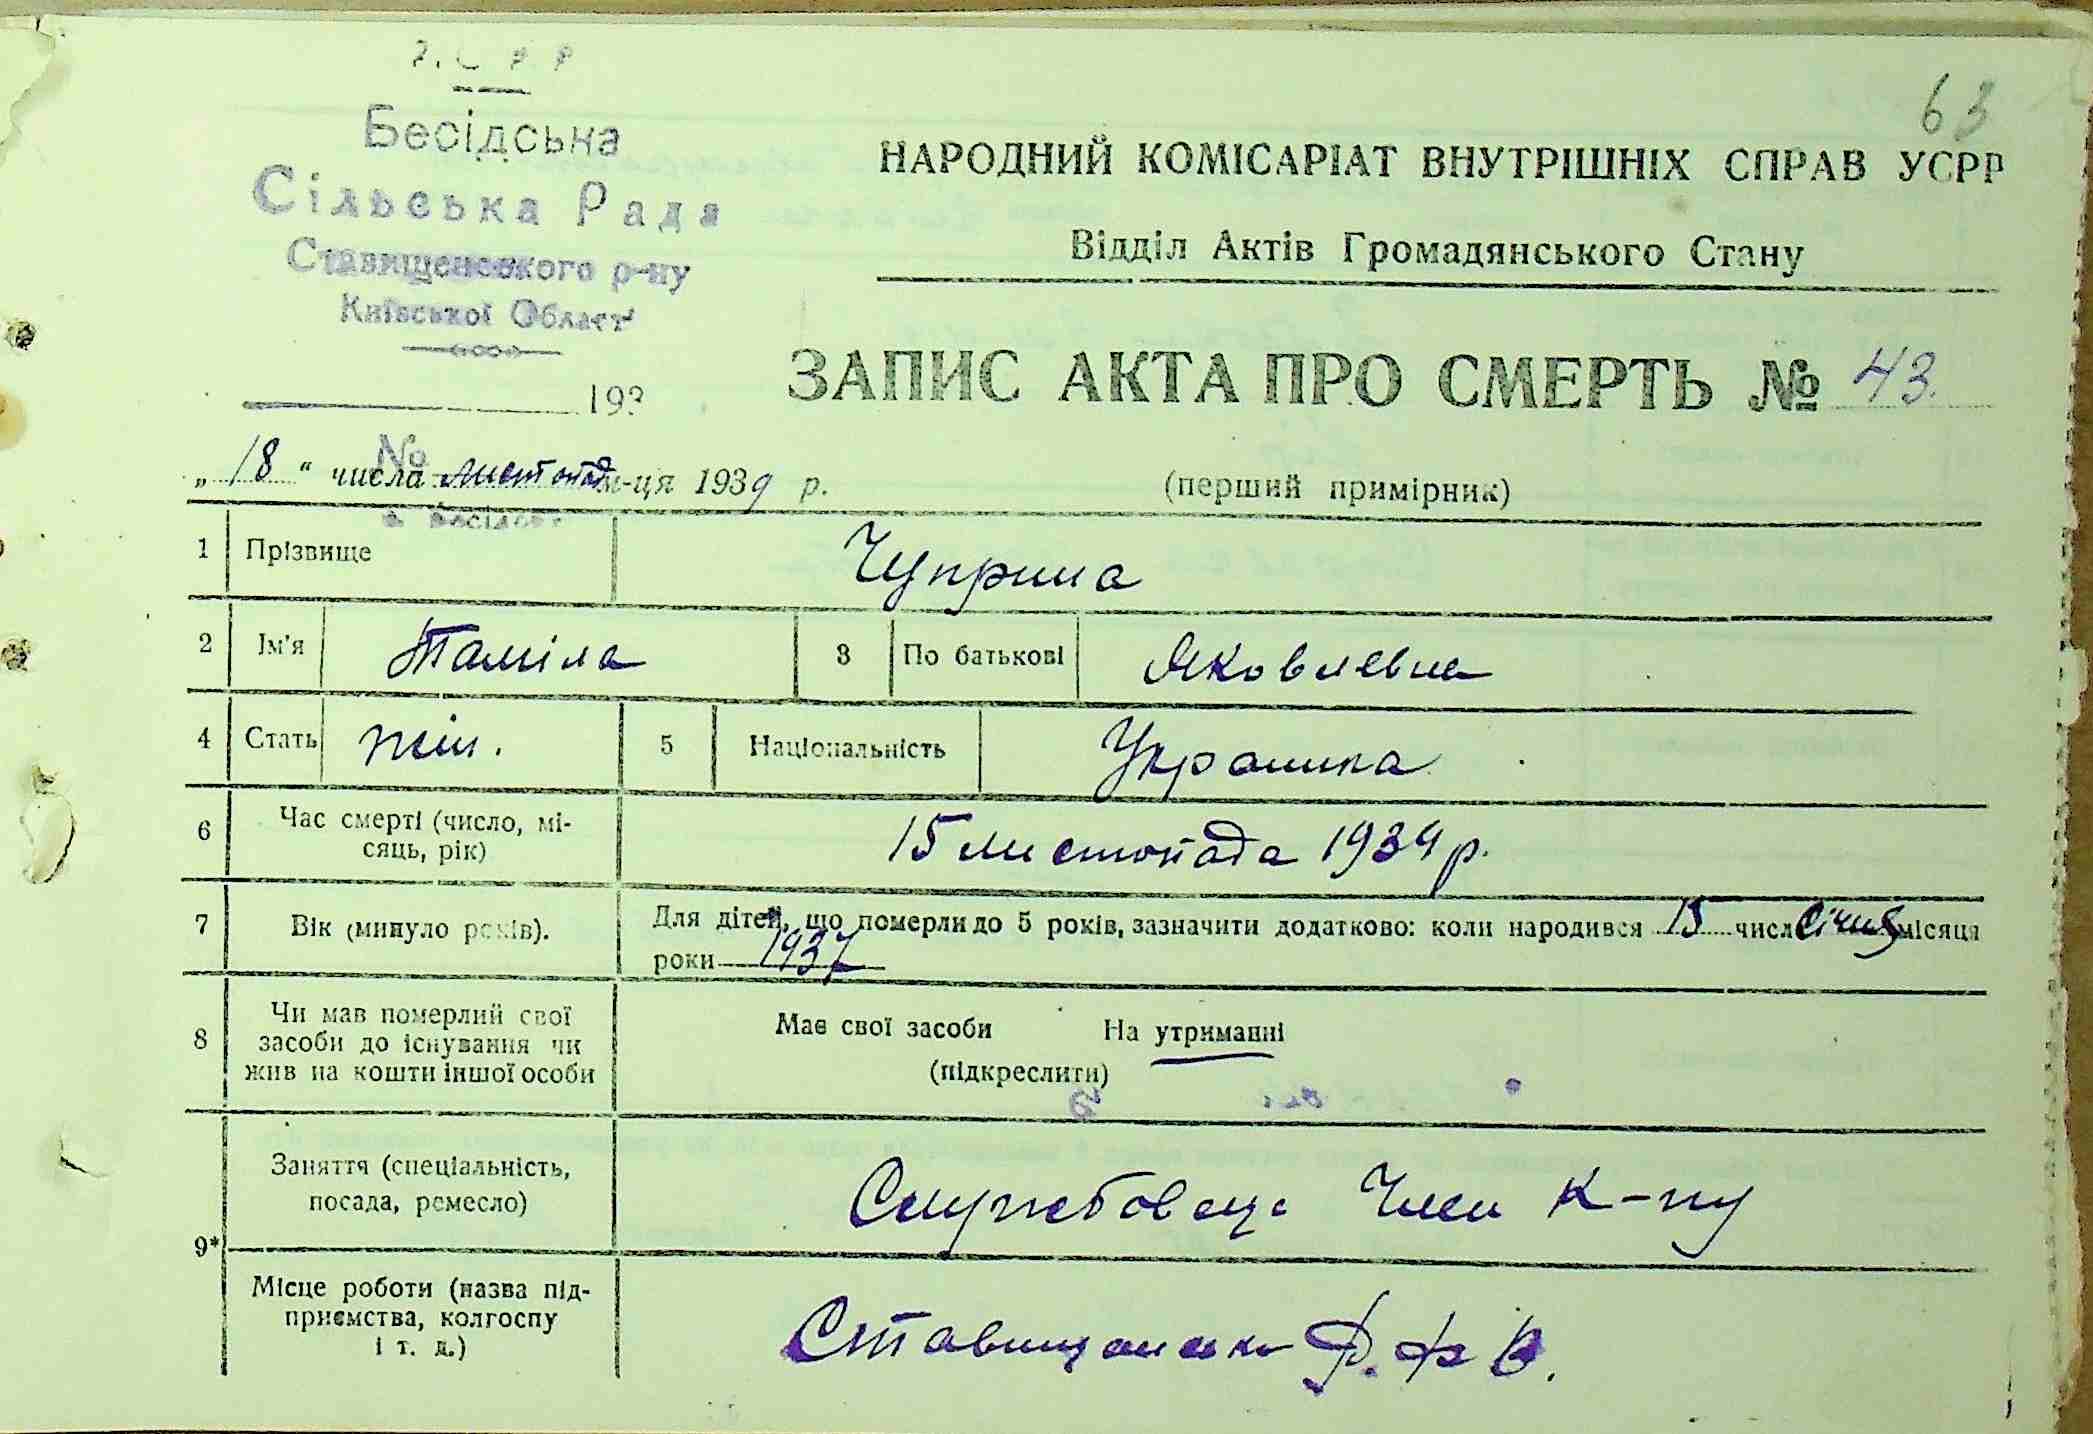 63
Бесідська
Сільська Рада
Ставищенського р-ну
Київської Області
193
№
НАРОДНИЙ КОМІСАРІАТ ВНУТРІШНІХ СПРАВ УСРР
Відділ Актів Громадянського Стану
ЗАПИС АКТА ПРО СМЕРТЬ № 43.
„ 18 “ числа листопад м-ця 1939 р.
(перший примірник)
1 Прізвище Чуприна
2 Ім'я Таміла 3 По батькові Яковлевна
4 Стать жін. 5 Національність Украинка
6 Час смерті (число, мі-
сяць, рік) 15 листопада 1939 р.
7 Вік (минуло років). Для дітей, що померли до 5 років, зазначити додатково: коли народився 15 числ Січня місяця
роки 1937
8 Чи мав померлий свої
засоби до існування чи
жив на кошти іншої особи
Має свої засоби На утриманні
(підкреслити)
9* Заняття (спеціальність,
посада, ремесло) Службовець Член к-пу
Місце роботи (назва під-
приємства, колгоспу
і т. д.)